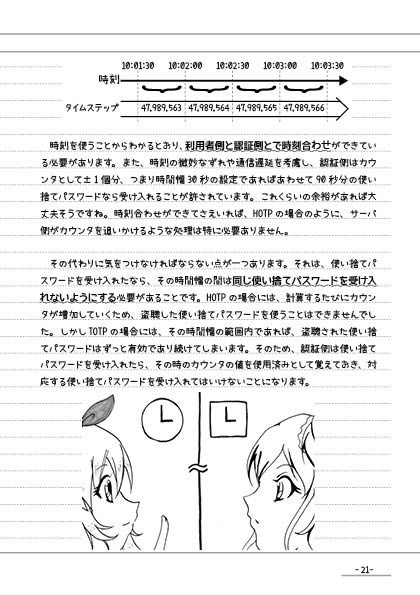 10:01:30 10:02:00 10:02:30 10:03:00 10:03:30
時刻
タイムステップ 47,989,563 47,989,564 47,989,565 47,989,566
時刻を使うことからわかるとおり、利用者側と認証側とで時刻合わせができてい
る必要があります。また、時刻の微妙なずれや通信遅延を考慮し、認証側はカウ
ンタとして±1個分、つまり時間幅30秒の設定であればあわせて90秒分の使い
捨てパスワードなら受け入れることが許されています。これくらいの余裕があれば大
丈夫そうですね。時刻合わせができてさえいれば、HOTPの場合のように、サーバ
側がカウンタを追いかけるような処理は特に必要ありません。
その代わりに気をつけなければならない点が一つあります。それは、使い捨てパ
スワードを受け入れたなら、その時間幅の間は同じ使い捨てパスワードを受け入
れないようにする必要があることです。HOTPの場合には、計算するたびにカウン
タが増加していくため、盗聴した使い捨てパスワードを使うことはできませんでし
た。しかしTOTPの場合には、その時間幅の範囲内であれば、盗聴された使い捨
てパスワードはずっと有効であり続けてしまいます。そのため、認証側は使い捨て
パスワードを受け入れたら、その時のカウンタの値を使用済みとして覚えておき、対
応する使い捨てパスワードを受け入れてはいけないことになります。
- 21-